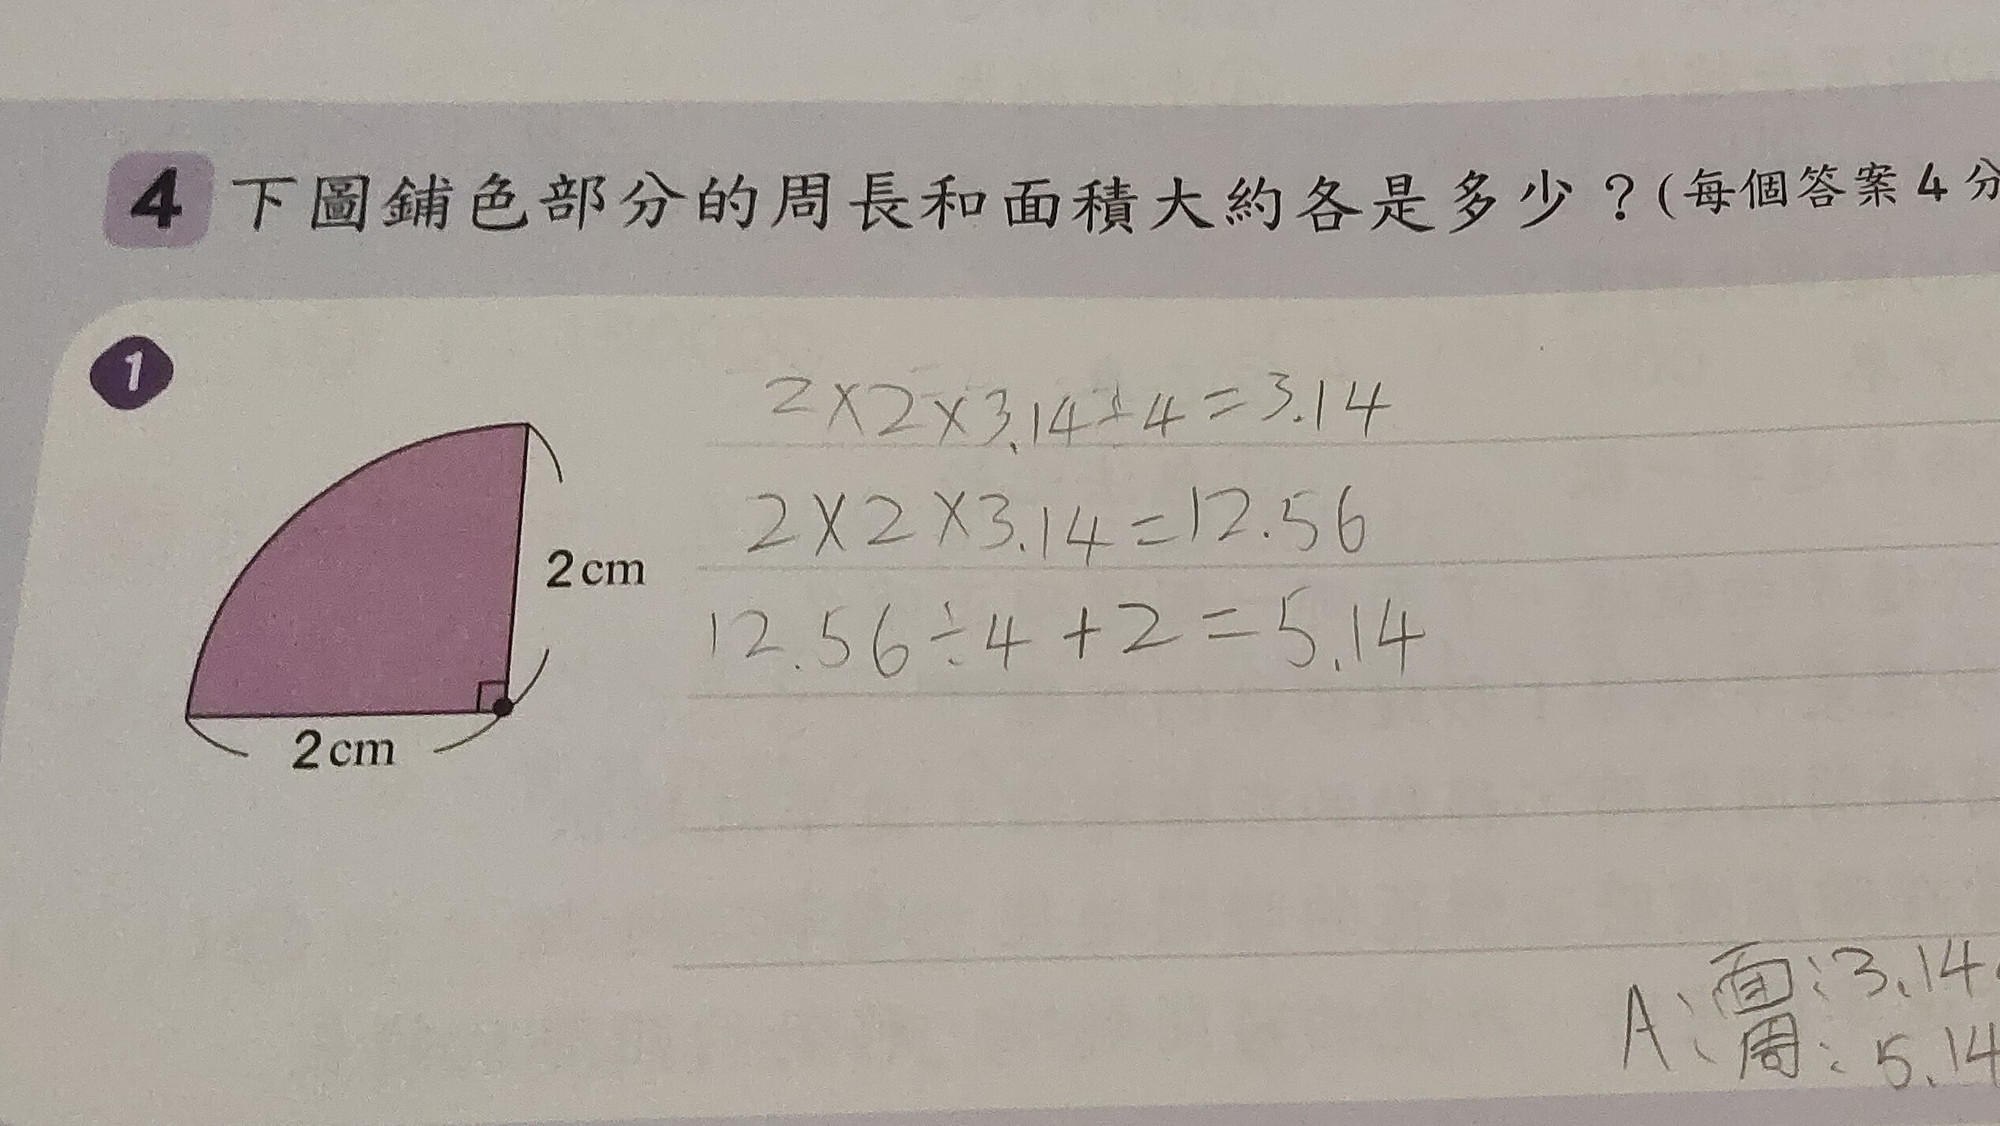 4 下圖鋪色部分的周長和面積大約各是多少？(每個答案4分
1
2×2×3.14÷4=3.14
2×2×3.14=12.56
12.56÷4+2=5.14
2cm
2cm
A：面：3.14
周：5.14